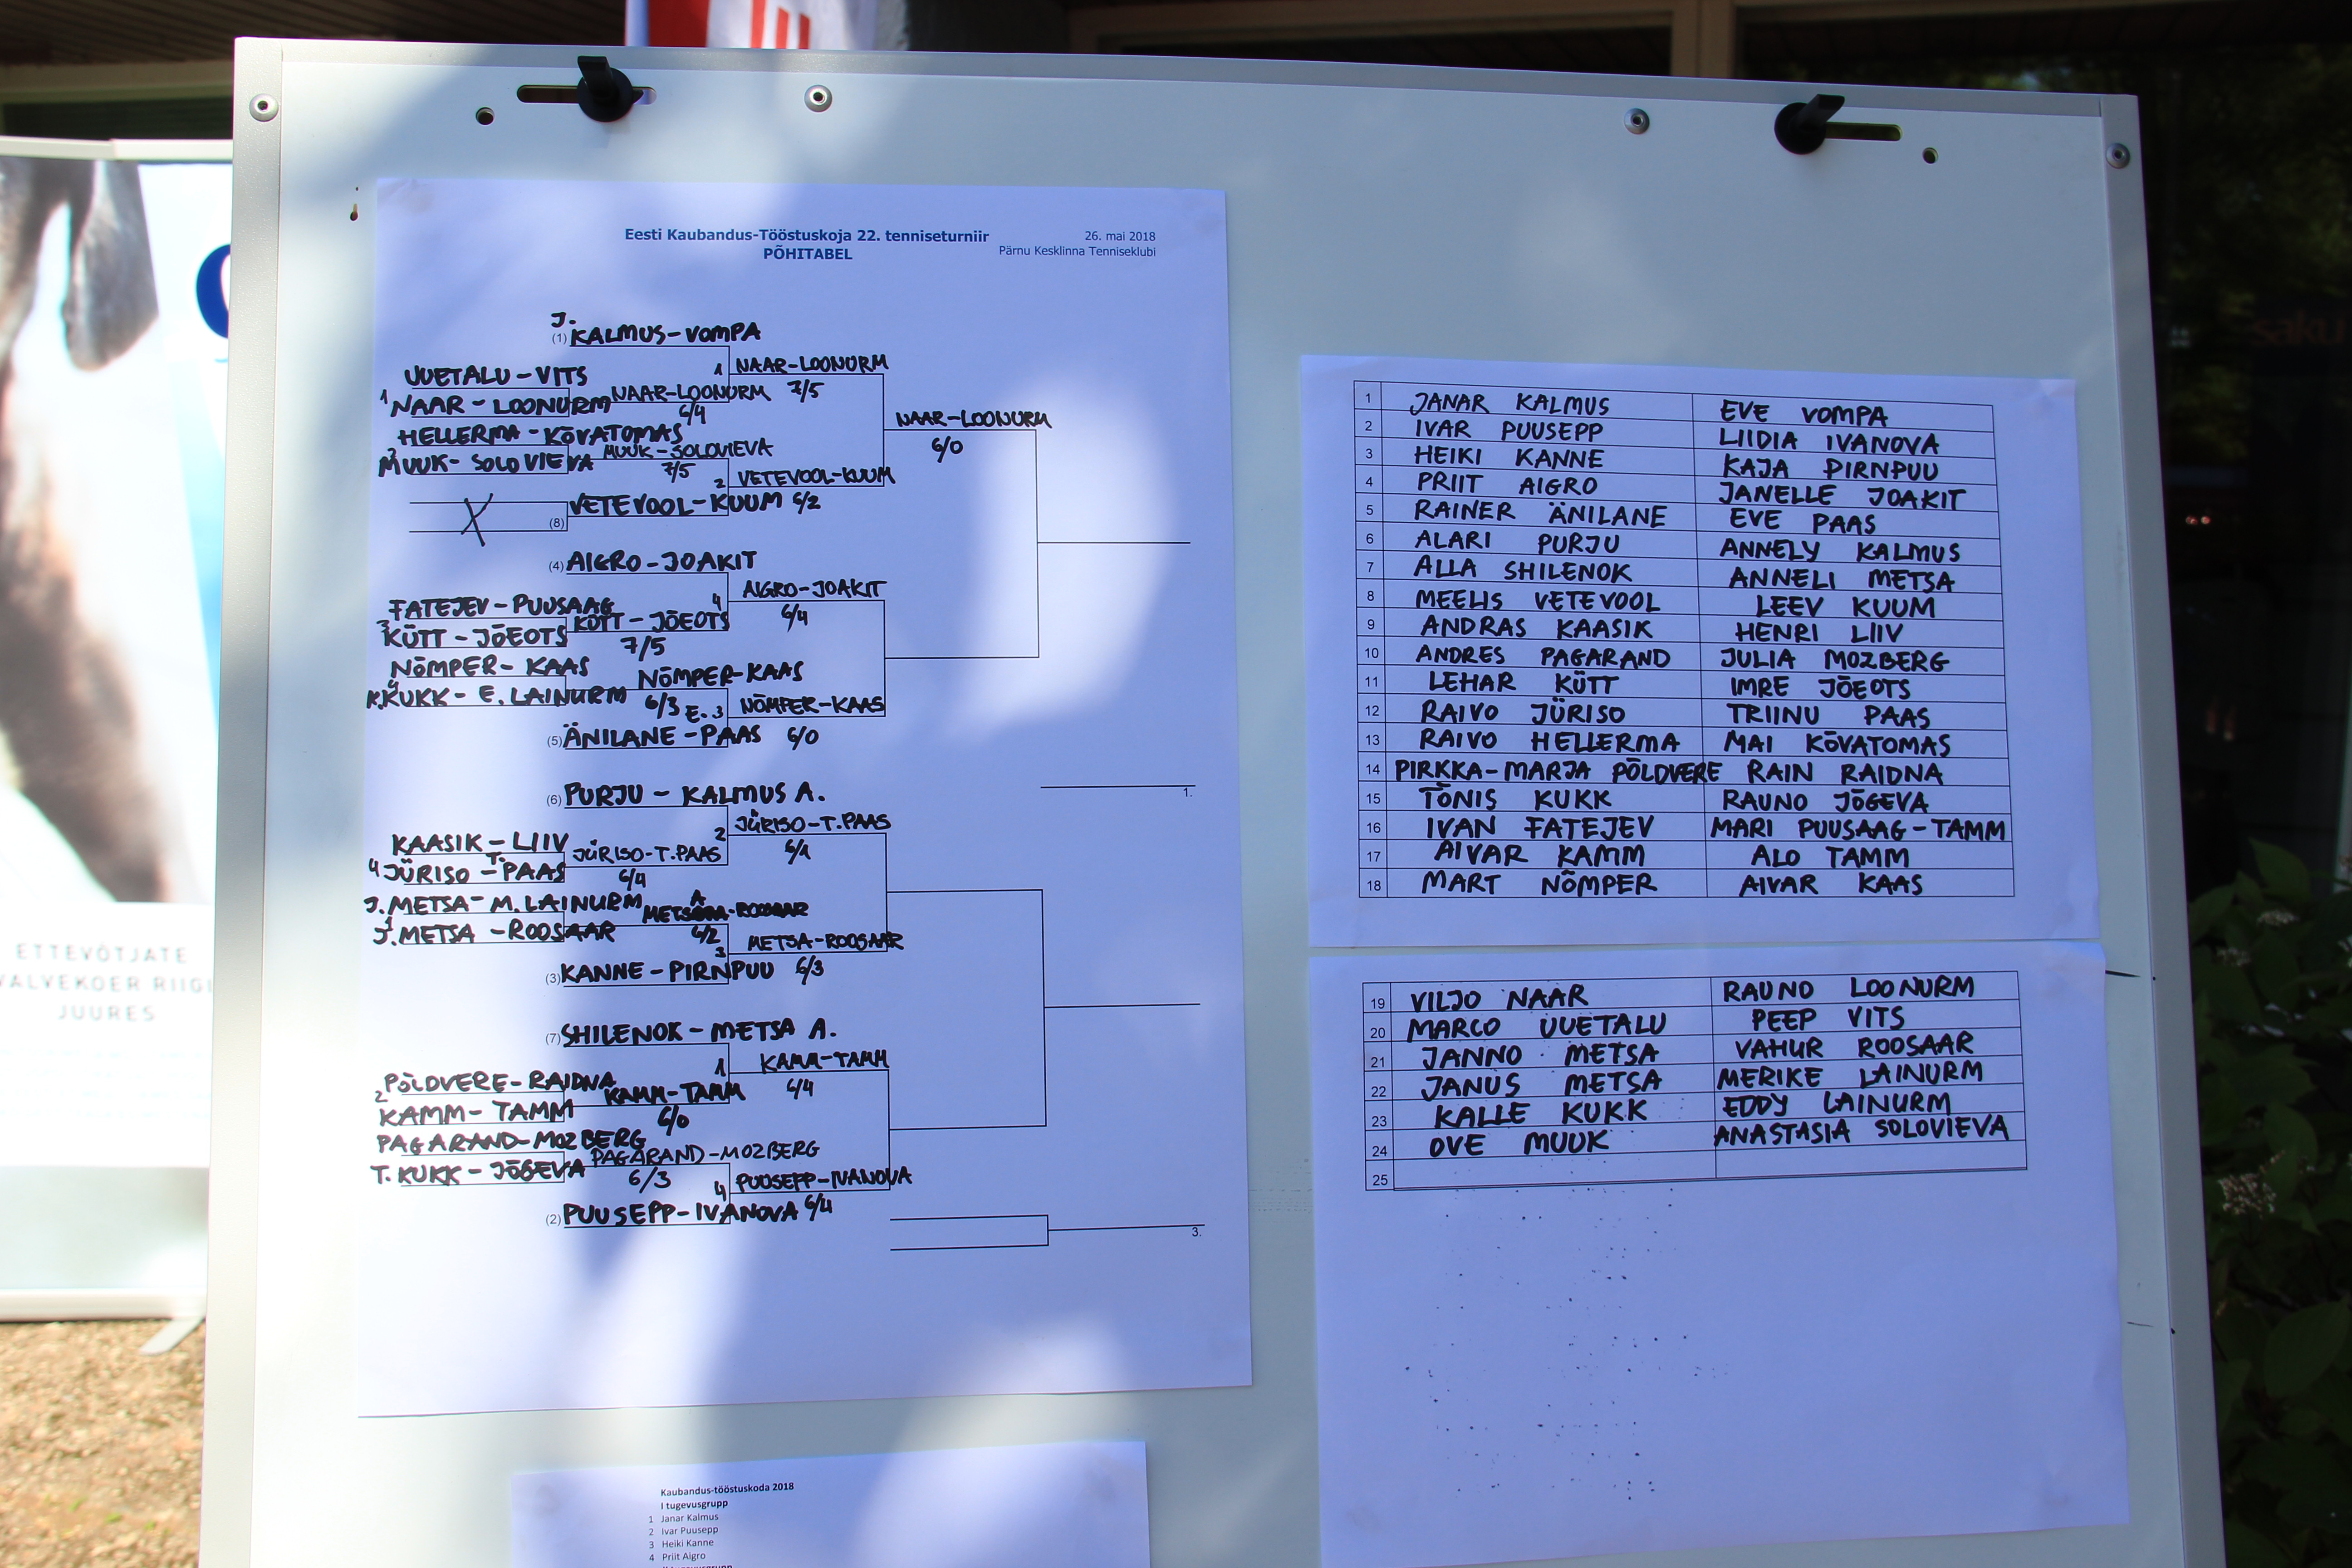 Eesti Kaubandus-Tööstuskoja 22. tenniseturniir
PÕHITABEL
26. mai 2018
Pärnu Kesklinna Tenniseklubi
J.
(1) KALMUS-VOMPA
1 NAAR-LOONURM
7/5
UUETALU-VITS
1 NAAR-LOONURM
NAAR-LOONURM
6/4
NAAR-LOONURM
6/0
HELLERMA-KÕVATOMAS
2 MUUK-SOLOVIEVA
MUUK-SOLOVIEVA
7/5
2 VETEVOOL-KUUM
6/2
X
(8) VETEVOOL-KUUM
(4) AIGRO-JOAKIT
4 AIGRO-JOAKIT
6/4
FATEJEV-PUUSAAG
3 KÜTT-JÕEOTS
KÜTT-JÕEOTS
7/5
NÕMPER-KAAS
K.KUKK-E.LAINURM
NÕMPER-KAAS
6/3
3 NÕMPER-KAAS
6/0
E.
(5) ÄNILANE-PAAS
1.
(6) PURJU-KALMUS A.
2 JÜRISO-T.PAAS
6/1
KAASIK-LIIV
T.
4 JÜRISO-PAAS
JÜRISO-T.PAAS
6/4
J.METSA-M.LAINURM
1
J.METSA-ROOSAAR
METSA-ROOSAAR
6/2
3 METSA-ROOSAAR
6/3
(3) KANNE-PIRNPUU
(7) SHILENOK-METSA A.
1 KAMM-TAMM
6/4
PÕLDVERE-RAIDNA
2 KAMM-TAMM
KAMM-TAMM
6/0
PAGARAND-MOZBERG
T.KUKK-JÕGEVA
PAGARAND-MOZBERG
6/3
4 PUUSEPP-IVANOVA
6/4
(2) PUUSEPP-IVANOVA
3.
1 JANAR KALMUS EVE VOMPA
2 IVAR PUUSEPP LIIDIA IVANOVA
3 HEIKI KANNE KAJA PIRNPUU
4 PRIIT AIGRO JANELLE JOAKIT
5 RAINER ÄNILANE EVE PAAS
6 ALARI PURJU ANNELY KALMUS
7 ALLA SHILENOK ANNELI METSA
8 MEELIS VETEVOOL LEEV KUUM
9 ANDRAS KAASIK HENRI LIIV
10 ANDRES PAGARAND JULIA MOZBERG
11 LEHAR KÜTT IMRE JÕEOTS
12 RAIVO JÜRISO TRIINU PAAS
13 RAIVO HELLERMA MAI KÕVATOMAS
14 PIRKKA-MARJA PÕLDVERE RAIN RAIDNA
15 TÕNIS KUKK RAUNO JÕGEVA
16 IVAN FATEJEV MARI PUUSAAG-TAMM
17 AIVAR KAMM ALO TAMM
18 MART NÕMPER AIVAR KAAS
19 VILJO NAAR RAUNO LOONURM
20 MARCO UUETALU PEEP VITS
21 JANNO METSA VAHUR ROOSAAR
22 JANUS METSA MERIKE LAINURM
23 KALLE KUKK EDDY LAINURM
24 OVE MUUK ANASTASIA SOLOVIEVA
25
Kaubandus-tööstuskoda 2018
I tugevusgrupp
1 Janar Kalmus
2 Ivar Puusepp
3 Heiki Kanne
4 Priit Aigro
ETTEVÕTJATE
VALVEKOER RIIGI
JUURES
saku